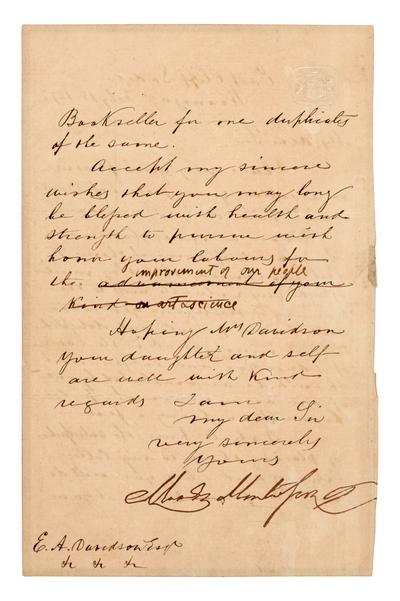 Bookseller for me duplicates
of the same.
Accept my sincere
wishes that you may long
be blessed with health and
strength to pursue with
honor your labours for
improvement of our people
the advancement of your
kind in art & science
Hoping Mrs Davidson
your daughter and self
are well with kind
regards I am
my dear Sir
very sincerely
yours
Moses Montefiore
E. A. Davidson Esqr
&c &c &c